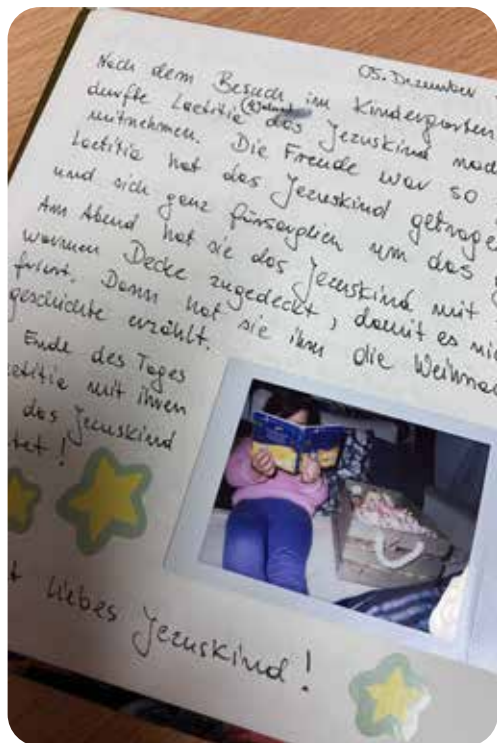 05. Dezember
Nach dem Besuch im Kindergarten
durfte Laetitia das Jezuskind nach
mitnehmen. Die Freude war so
Laetitia hat das Jezuskind getragen
und sich ganz fürsorglich um das
Am Abend hat sie das Jezuskind mit
warmen Decke zugedeckt, damit es nic
friert. Dann hat sie ihm die Weihnac
geschichte erzählt.
Ende des Tages
aetitia mit ihren
das Jezuskind
tet!
t liebes Jezuskind!